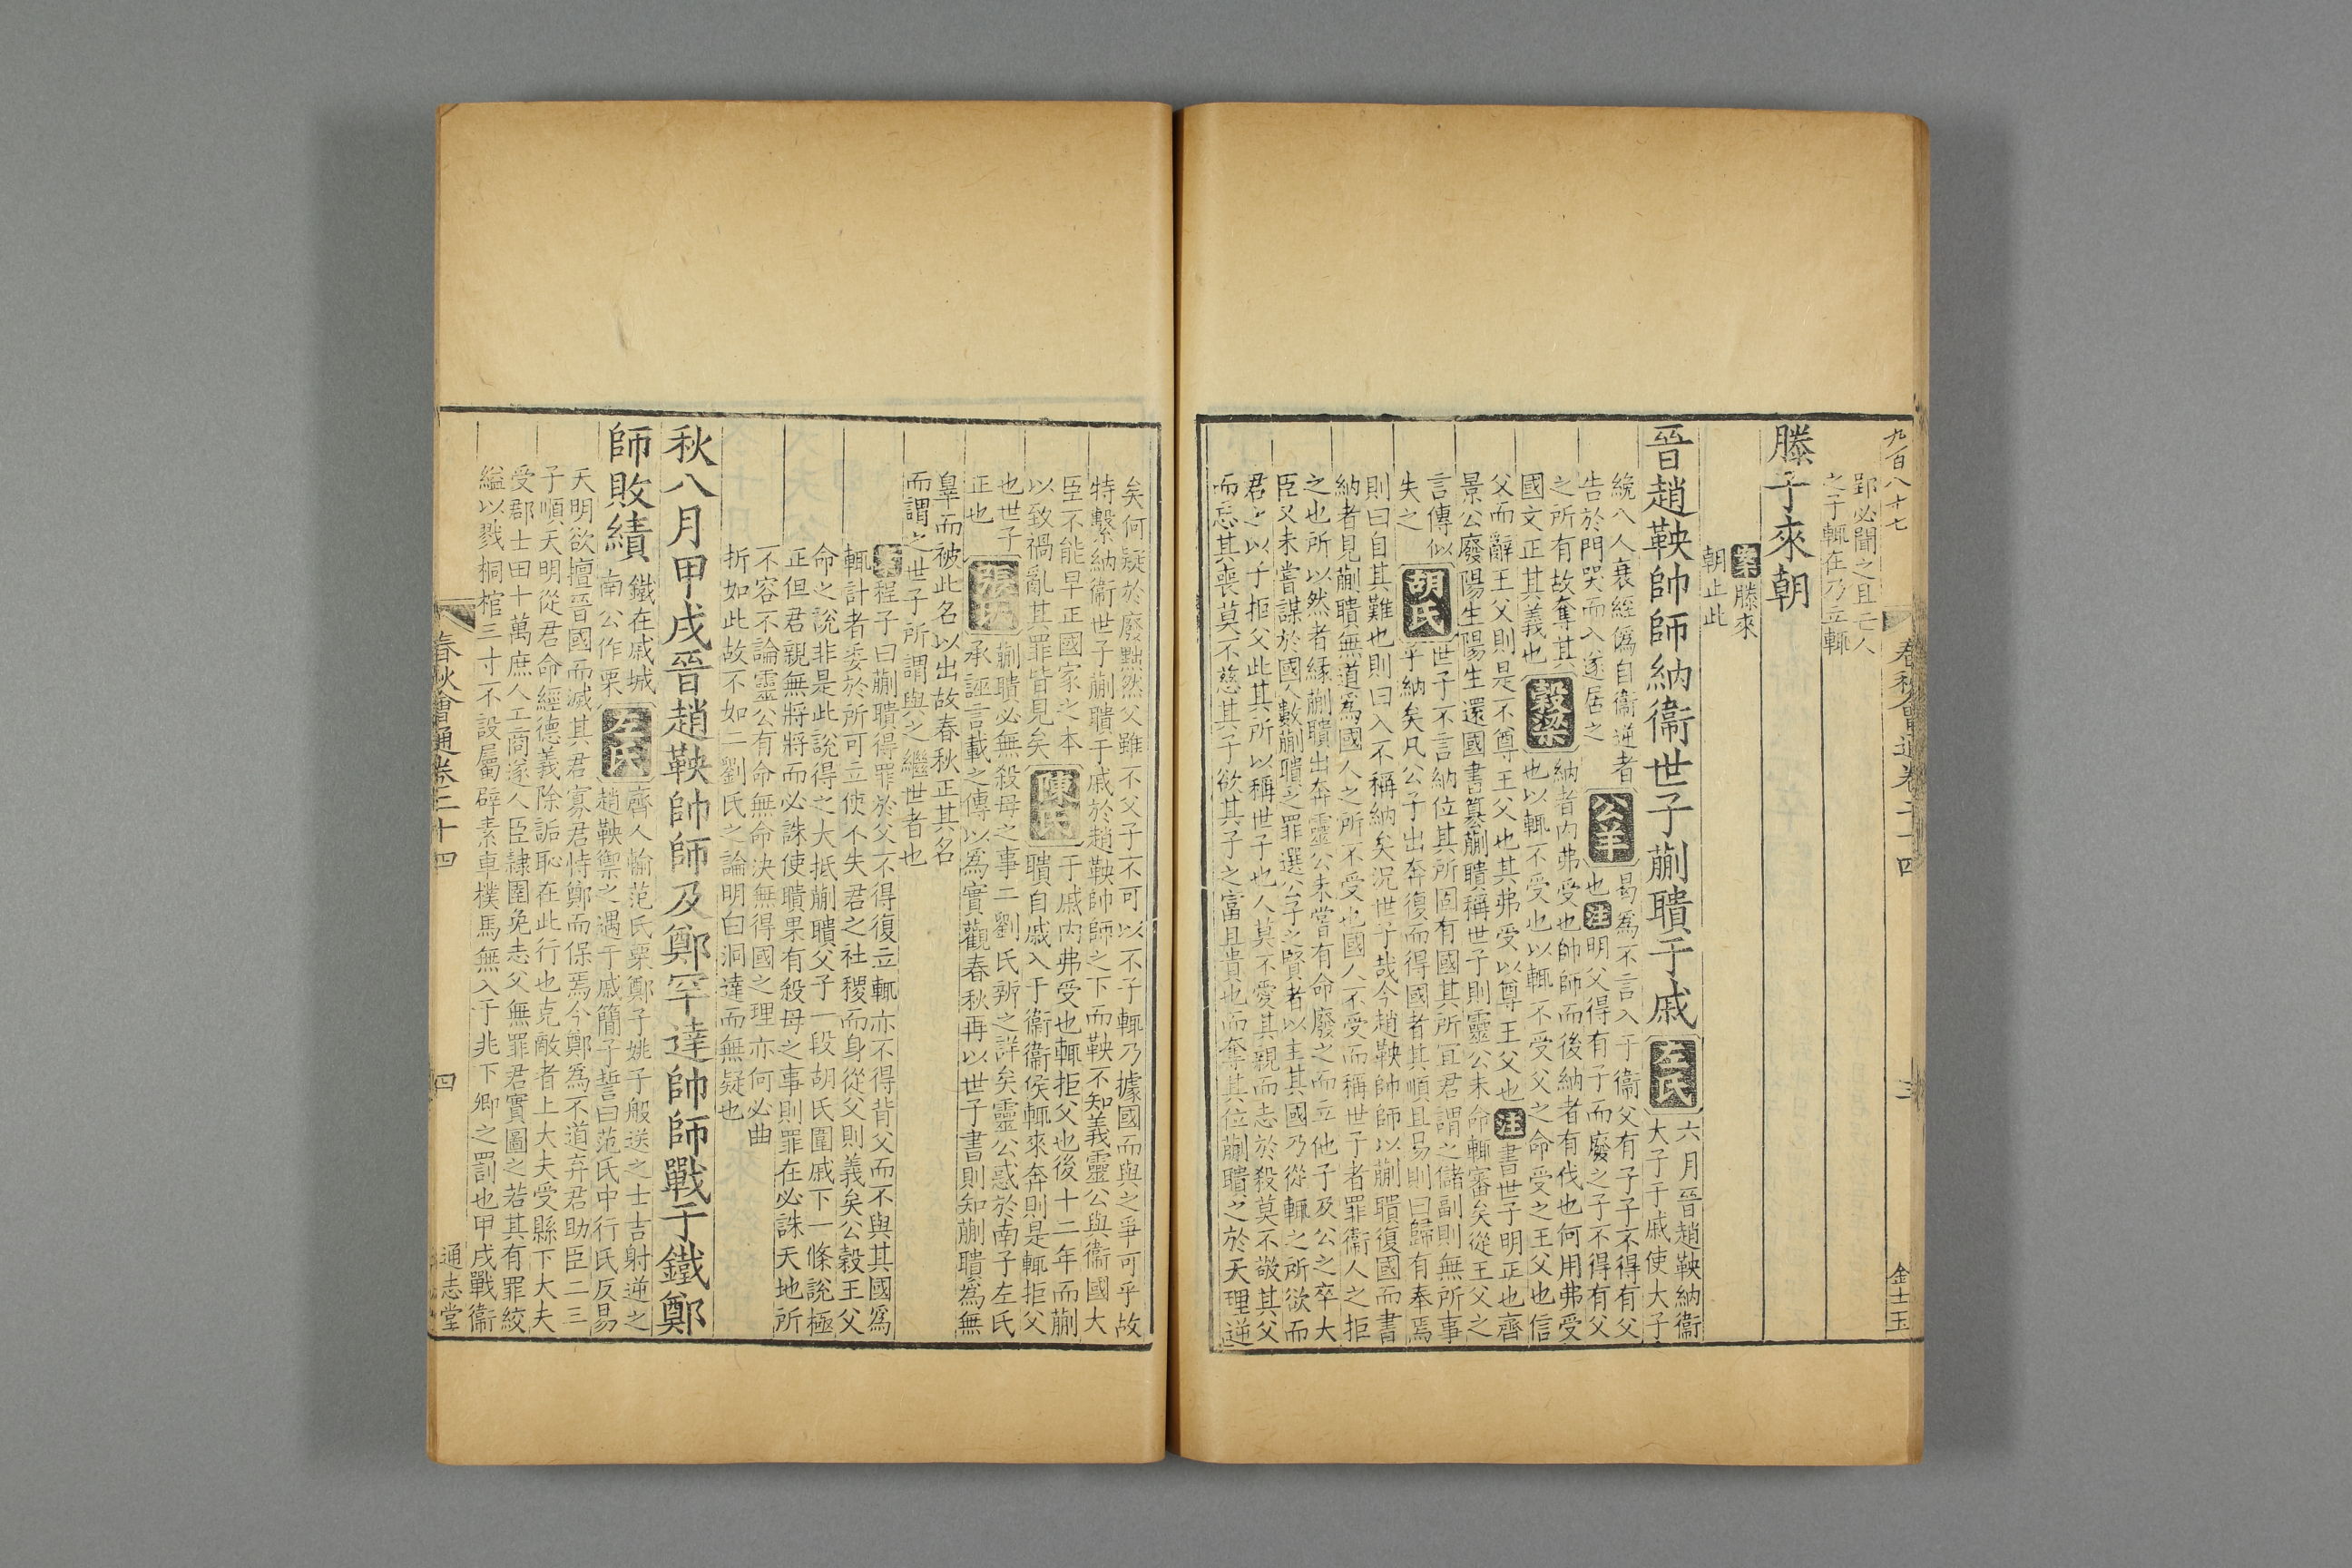 九百八十七
春秋會通卷二十四
三
金士玉
郢必聞之且亡人
之子輒在乃立輒
滕子來朝
案滕來
朝止此
晉趙鞅帥師納衞世子蒯聵于戚
左氏
六月晉趙鞅納衞
大子于戚使大子
絻八人衰絰僞自衞逆者
告於門哭而入遂居之
公羊
曷爲不言入于衞父有子子不得有父
也注明父得有子而廢之子不得有父
之所有故奪其
國文正其義也
穀梁
納者內弗受也帥師而後納者有伐也何用弗受
也以輒不受也以輒不受父之命受之王父也信
父而辭王父則是不尊王父也其弗受以尊王父也注書世子明正也齊
景公廢陽生陽生還國書簒蒯聵稱世子則靈公未命輒審矣從王父之
言傳似
失之
胡氏
世子不言納位其所固有國其所宜君謂之儲副則無所事
乎納矣凡公子出奔復而得國者其順且易則曰歸有奉焉
則曰自其難也則曰入不稱納矣況世子哉今趙鞅帥師以蒯聵復國而書
納者見蒯聵無道爲國人之所不受也國人不受而稱世子者罪衞人之拒
之也所以然者緣蒯聵出奔靈公未嘗有命廢之而立他子及公之卒大
臣又未嘗謀於國人數蒯聵之罪選公子之賢者以主其國乃從輒之所欲而
君之以子拒父此其所以稱世子也人莫不愛其親而志於殺莫不敬其父
而忘其喪莫不慈其子欲其子之富且貴也而奪其位蒯聵之於天理逆
矣何疑於廢黜然父雖不父子不可以不子輒乃據國而與之爭可乎故
特繫納衞世子蒯聵于戚於趙鞅帥師之下而鞅不知義靈公與衞國大
臣不能早正國家之本
以致禍亂其罪皆見矣
陳氏
于戚內弗受也輒拒父也後十二年而蒯
聵自戚入于衞衞侯輒來奔則是輒拒父
也世子
正也
張氏
蒯聵必無殺母之事二劉氏辨之詳矣靈公惑於南子左氏
承誣言載之傳以爲實觀春秋再以世子書則知蒯聵爲無
辠而被此名以出故春秋正其名
而謂之世子所謂與之繼世者也
案程子曰蒯聵得罪於父不得復立輒亦不得背父而不與其國爲
輒計者委於所可立使不失君之社稷而身從父則義矣公穀王父
命之說非是此說得之大抵蒯聵父子一段胡氏圍戚下一條說極
正但君親無將將而必誅使聵果有殺母之事則罪在必誅天地所
不容不論靈公有命無命決無得國之理亦何必曲
折如此故不如二劉氏之論明白洞達而無疑也
秋八月甲戌晉趙鞅帥師及鄭罕達帥師戰于鐵鄭
師敗績
鐵在戚城
南公作栗
左氏
齊人輸范氏粟鄭子姚子般送之士吉射逆之
趙鞅禦之遇于戚簡子誓曰范氏中行氏反易
天明欲擅晉國而滅其君寡君恃鄭而保焉今鄭爲不道弃君助臣二三
子順天明從君命經德義除詬恥在此行也克敵者上大夫受縣下大夫
受郡士田十萬庶人工商遂人臣隷圉免志父無罪君實圖之若其有罪絞
縊以戮桐棺三寸不設屬辟素車樸馬無入于兆下卿之罰也甲戌戰衞
春秋會通卷二十四
四
通志堂